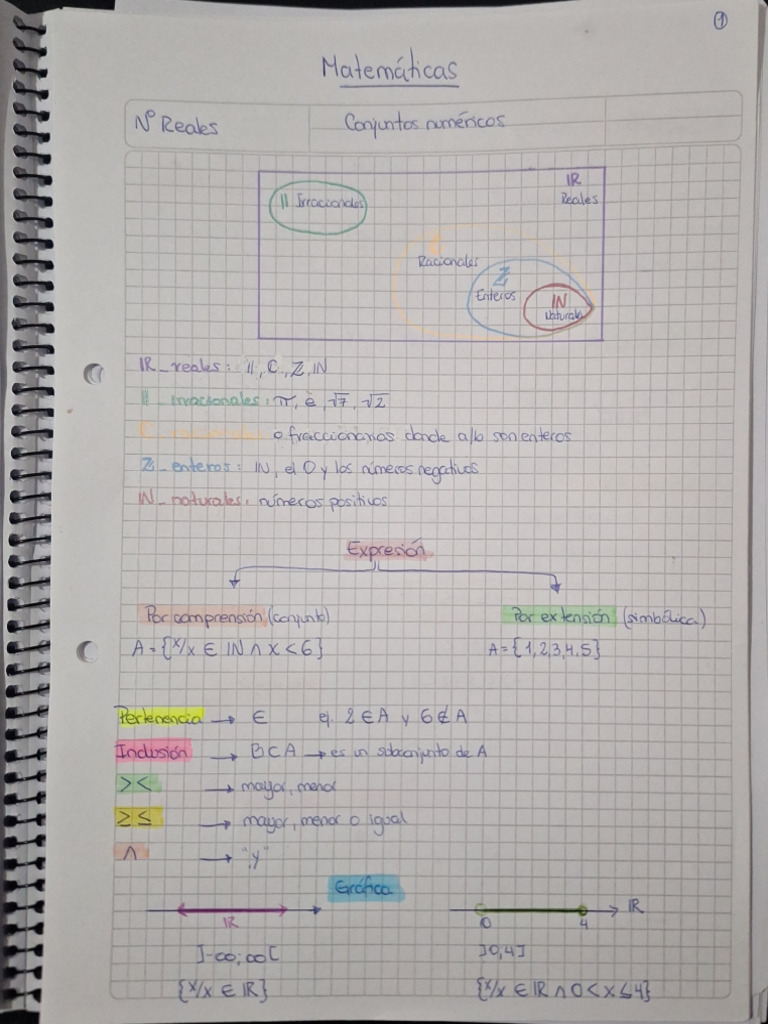 1
Matemáticas
Nº Reales Conjuntos numéricos
IR
Reales
II Irracionales
Racionales
Z
Enteros
IN
Naturales
IR_reales: II, C, Z, IN
II_irracionales: π, e, √7, √2
o fraccionarios donde a/b son enteros
Z_enteros: IN, el 0 y los números negativos
IN_naturales: números positivos
Expresión
Por comprensión (conjunto) Por extensión (simbólica)
A = {x/x ∈ IN ∧ x < 6} A = {1,2,3,4,5}
Pertenencia → ∈ ej. 2 ∈ A y 6 ∉ A
Inclusión → B ⊂ A → es un subconjunto de A
> < → mayor, menor
≥ ≤ → mayor, menor o igual
∧ → "y"
Gráfica
IR 0 4 IR
]-∞; ∞[ ]0,4]
{x/x ∈ IR} {x/x ∈ IR ∧ 0 < x ≤ 4}